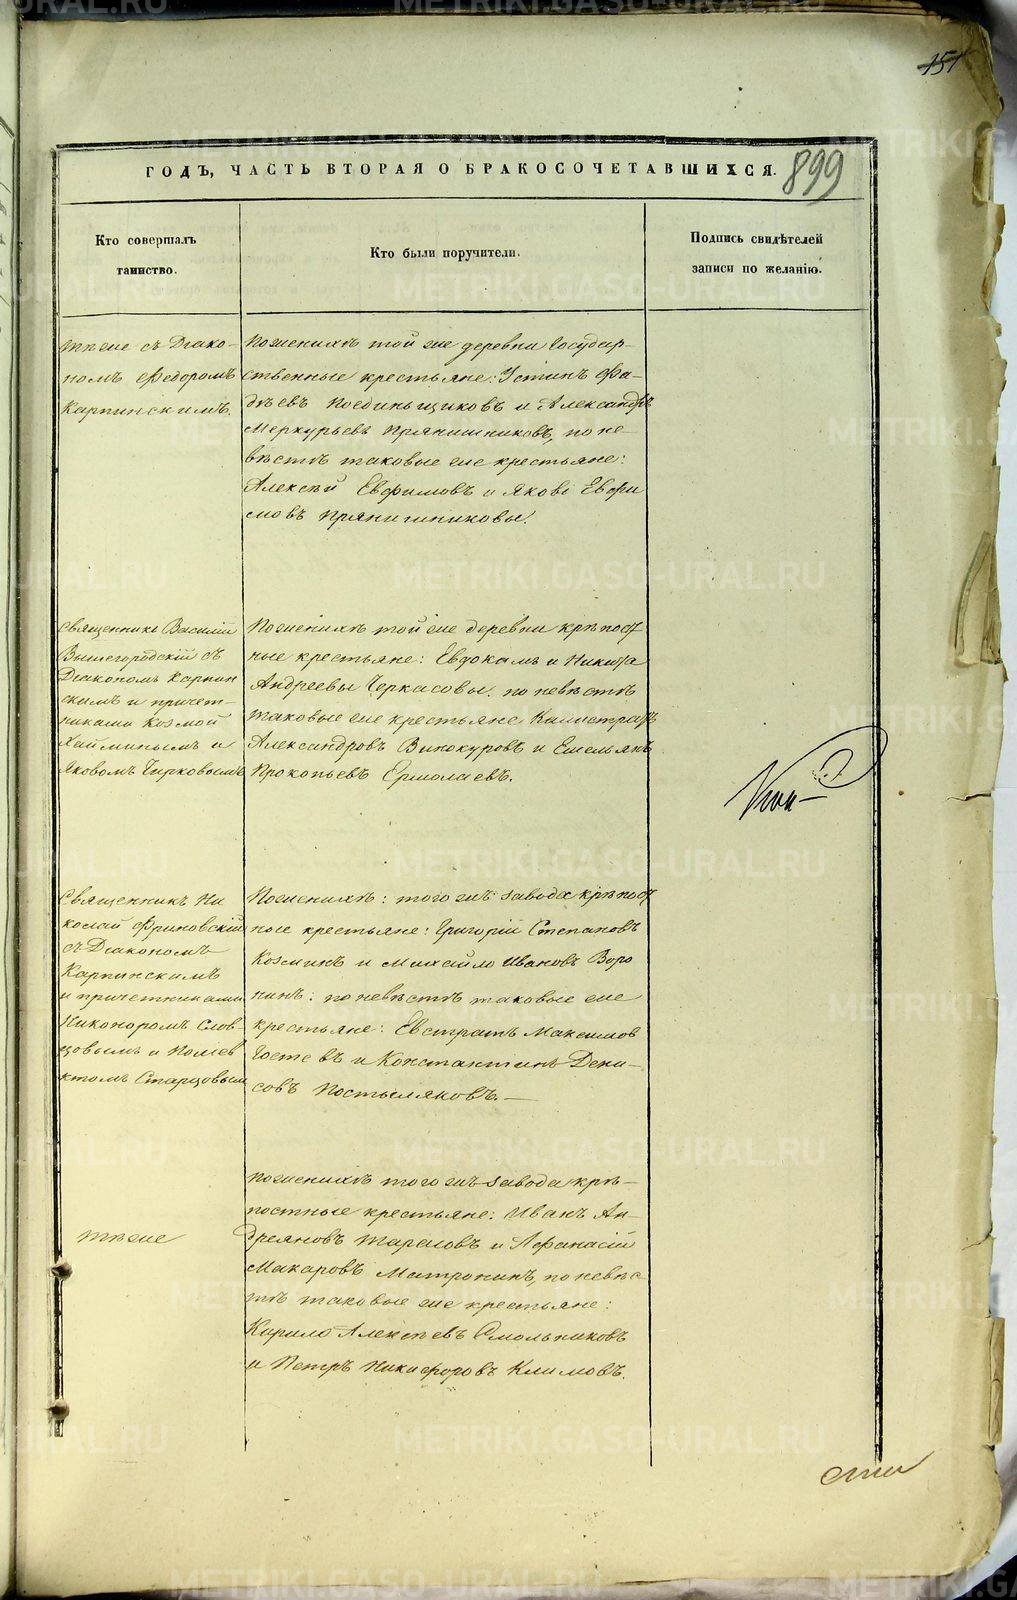 151
ГОДЪ, ЧАСТЬ ВТОРАЯ О БРАКОСОЧЕТАВШИХСЯ.
899
Кто совершалъ
таинство.
Кто были поручители.
Подпись свидѣтелей
записи по желанію.
Тѣже съ Діако-
номъ Федоромъ
Карпинскимъ.
Поженихѣ той же деревни Государ-
ственные крестьяне: Устинъ Фа-
дѣевъ и Александръ
Меркурьевъ Прянишниковъ, по не-
вѣстѣ таковые же крестьяне:
Алексѣй Евфимовъ и Яковъ Евфи
мовъ Прянишниковы.
Священникъ Василій
Вышегородскій съ
Діакономъ Карпин
скимъ и причет-
никами Козмой
и
Яковомъ Чирковымъ
Поженихѣ той же деревни крѣпост
ные крестьяне: Евдокимъ и Никита
Андреевы Черкасовы. по невѣстѣ
таковые же крестьяне Калистратъ
Александровъ Винокуровъ и Емельянъ
Прокопьевъ Ермолаевъ.
Священникъ Ни
колай Фриновскій
съ Діакономъ
Карпинскимъ
и причетниками
Никоноромъ Слов-
цовымъ и Поліев
ктомъ Старцовым
Поженихѣ: того жъ завода крѣпост
ные крестьяне: Григорій Степановъ
Козминъ и Михайло Ивановъ Воро
нинъ: по невѣстѣ таковые же
крестьяне: Евстратъ Максимов
Гостевъ и Константинъ Дени-
совъ Постыляковъ.—
тѣже
Поженихѣ того жъ завода крѣ-
постные крестьяне: Иванъ Ан-
дреяновъ Тарасовъ и Афанасій
Макаровъ Матронинъ, по невѣс
тѣ таковые же крестьяне:
Кирило Алексѣевъ Смольниковъ
и Петръ Никифоровъ Климовъ.
METRIKI.GASO-URAL.RU